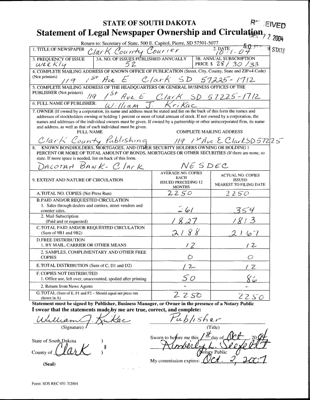 STATE OF SOUTH DAKOTA
Statement of Legal Newspaper Ownership and Circulation
Return to: Secretary of State, 500 E. Capitol, Pierre, SD 57501-5077
1. TITLE OF NEWSPAPER Clark County Courier 2. DATE 10-1-04
3. FREQUENCY OF ISSUE weekly 3A. NO. OF ISSUES PUBLISHED ANNUALLY 52 3B. ANNUAL SUBSCRIPTION PRICE $ 28/30/33
4. COMPLETE MAILING ADDRESS OF KNOWN OFFICE OF PUBLICATION (Street, City, County, State, and ZIP+4 Code) (Not printers) 119 1st Ave E Clark SD 57225-1712
5. COMPLETE MAILING ADDRESS OF THE HEADQUARTERS OR GENERAL BUSINESS OFFICES OF THE PUBLISHER (Not printers) 119 1st Ave E Clark SD 57225-1712
6. FULL NAME OF PUBLISHER: William J Krikac
7. OWNER (If owned by a corporation, its name and address must be stated and list on the back of this form the names and
addresses of stockholders owning or holding 1 percent or more of total amount of stock. If not owned by a corporation, the
names and addresses of the individual owners must be given. If owned by a partnership or other unincorporated firm, its name
and address, as well as that of each individual must be given.
FULL NAME COMPLETE MAILING ADDRESS
Clark County Publishing 119 1st Ave E Clark SD 57225
8. KNOWN BONDHOLDERS, MORTGAGES, AND OTHER SECURITY HOLDERS OWNING OR HOLDING 1
PERCENT OR MORE OF TOTAL AMOUNT OF BONDS, MORTGAGES OR OTHER SECURITIES (If there are none, so
state. If more space is needed, list on back of this form.
Dacotah Bank - Clark NESDEC
9. EXTENT AND NATURE OF CIRCULATION
AVERAGE NO. COPIES EACH ISSUED PRECEDING 12 MONTHS
ACTUAL NO. COPIES ISSUED NEAREST TO FILING DATE
A. TOTAL NO. COPIES (Net Press Run) 2250 2250
B. PAID AND/OR REQUESTED CIRCULATION
1. Sales through dealers and carriers, street vendors and counter sales. 361 354
2. Mail Subscription (Paid and or requested) 1827 1813
C. TOTAL PAID AND/OR REQUESTED CIRCULATION (Sum of 9B1 and 9B2) 2188 2167
D. FREE DISTRIBUTION
1. BY MAIL, CARRIER OR OTHER MEANS 12 12
2. SAMPLES, COMPLIMENTARY AND OTHER FREE COPIES 0 0
E. TOTAL DISTRIBUTION (Sum of C, D1 and D2) 12
F. COPIES NOT DISTRIBUTED
1. Office use, left over, unaccounted, spoiled after printing 50
2. Return from News Agents - -
G. TOTAL (Sum of E, F1 and F2 - Should equal net press run shown in A) 2250 2250
Statement must be signed by Publisher, Business Manager, or Owner in the presence of a Notary Public
I swear that the statements made by me are true, correct, and complete:
William J. Krikac Publisher
(Signature) (Title)
State of South Dakota )
County of Clark )
Sworn to before me this 1st day of Oct 2004
Notary Public
(Seal) My commission expires: Oct 2, 2007
Form: SOS REC 051 7/2004